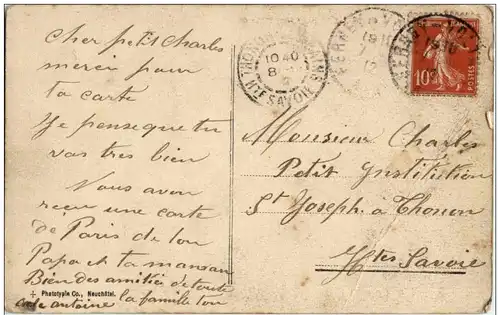 Cher petit Charles
merci pour
ta carte
Je pense que tu
vas très bien
Nous avon
reçu une carte
de Paris de ton
Papa et ta maman
Bien des amitiés de toute
la famille ton
antoine
Phototypie Co., Neuchâtel.
THONON
10 40
8
HTE SAVOIE
12
10c
POSTES
Monsieur Charles
Petit Institution
St Joseph à Thonon
Htes Savoie